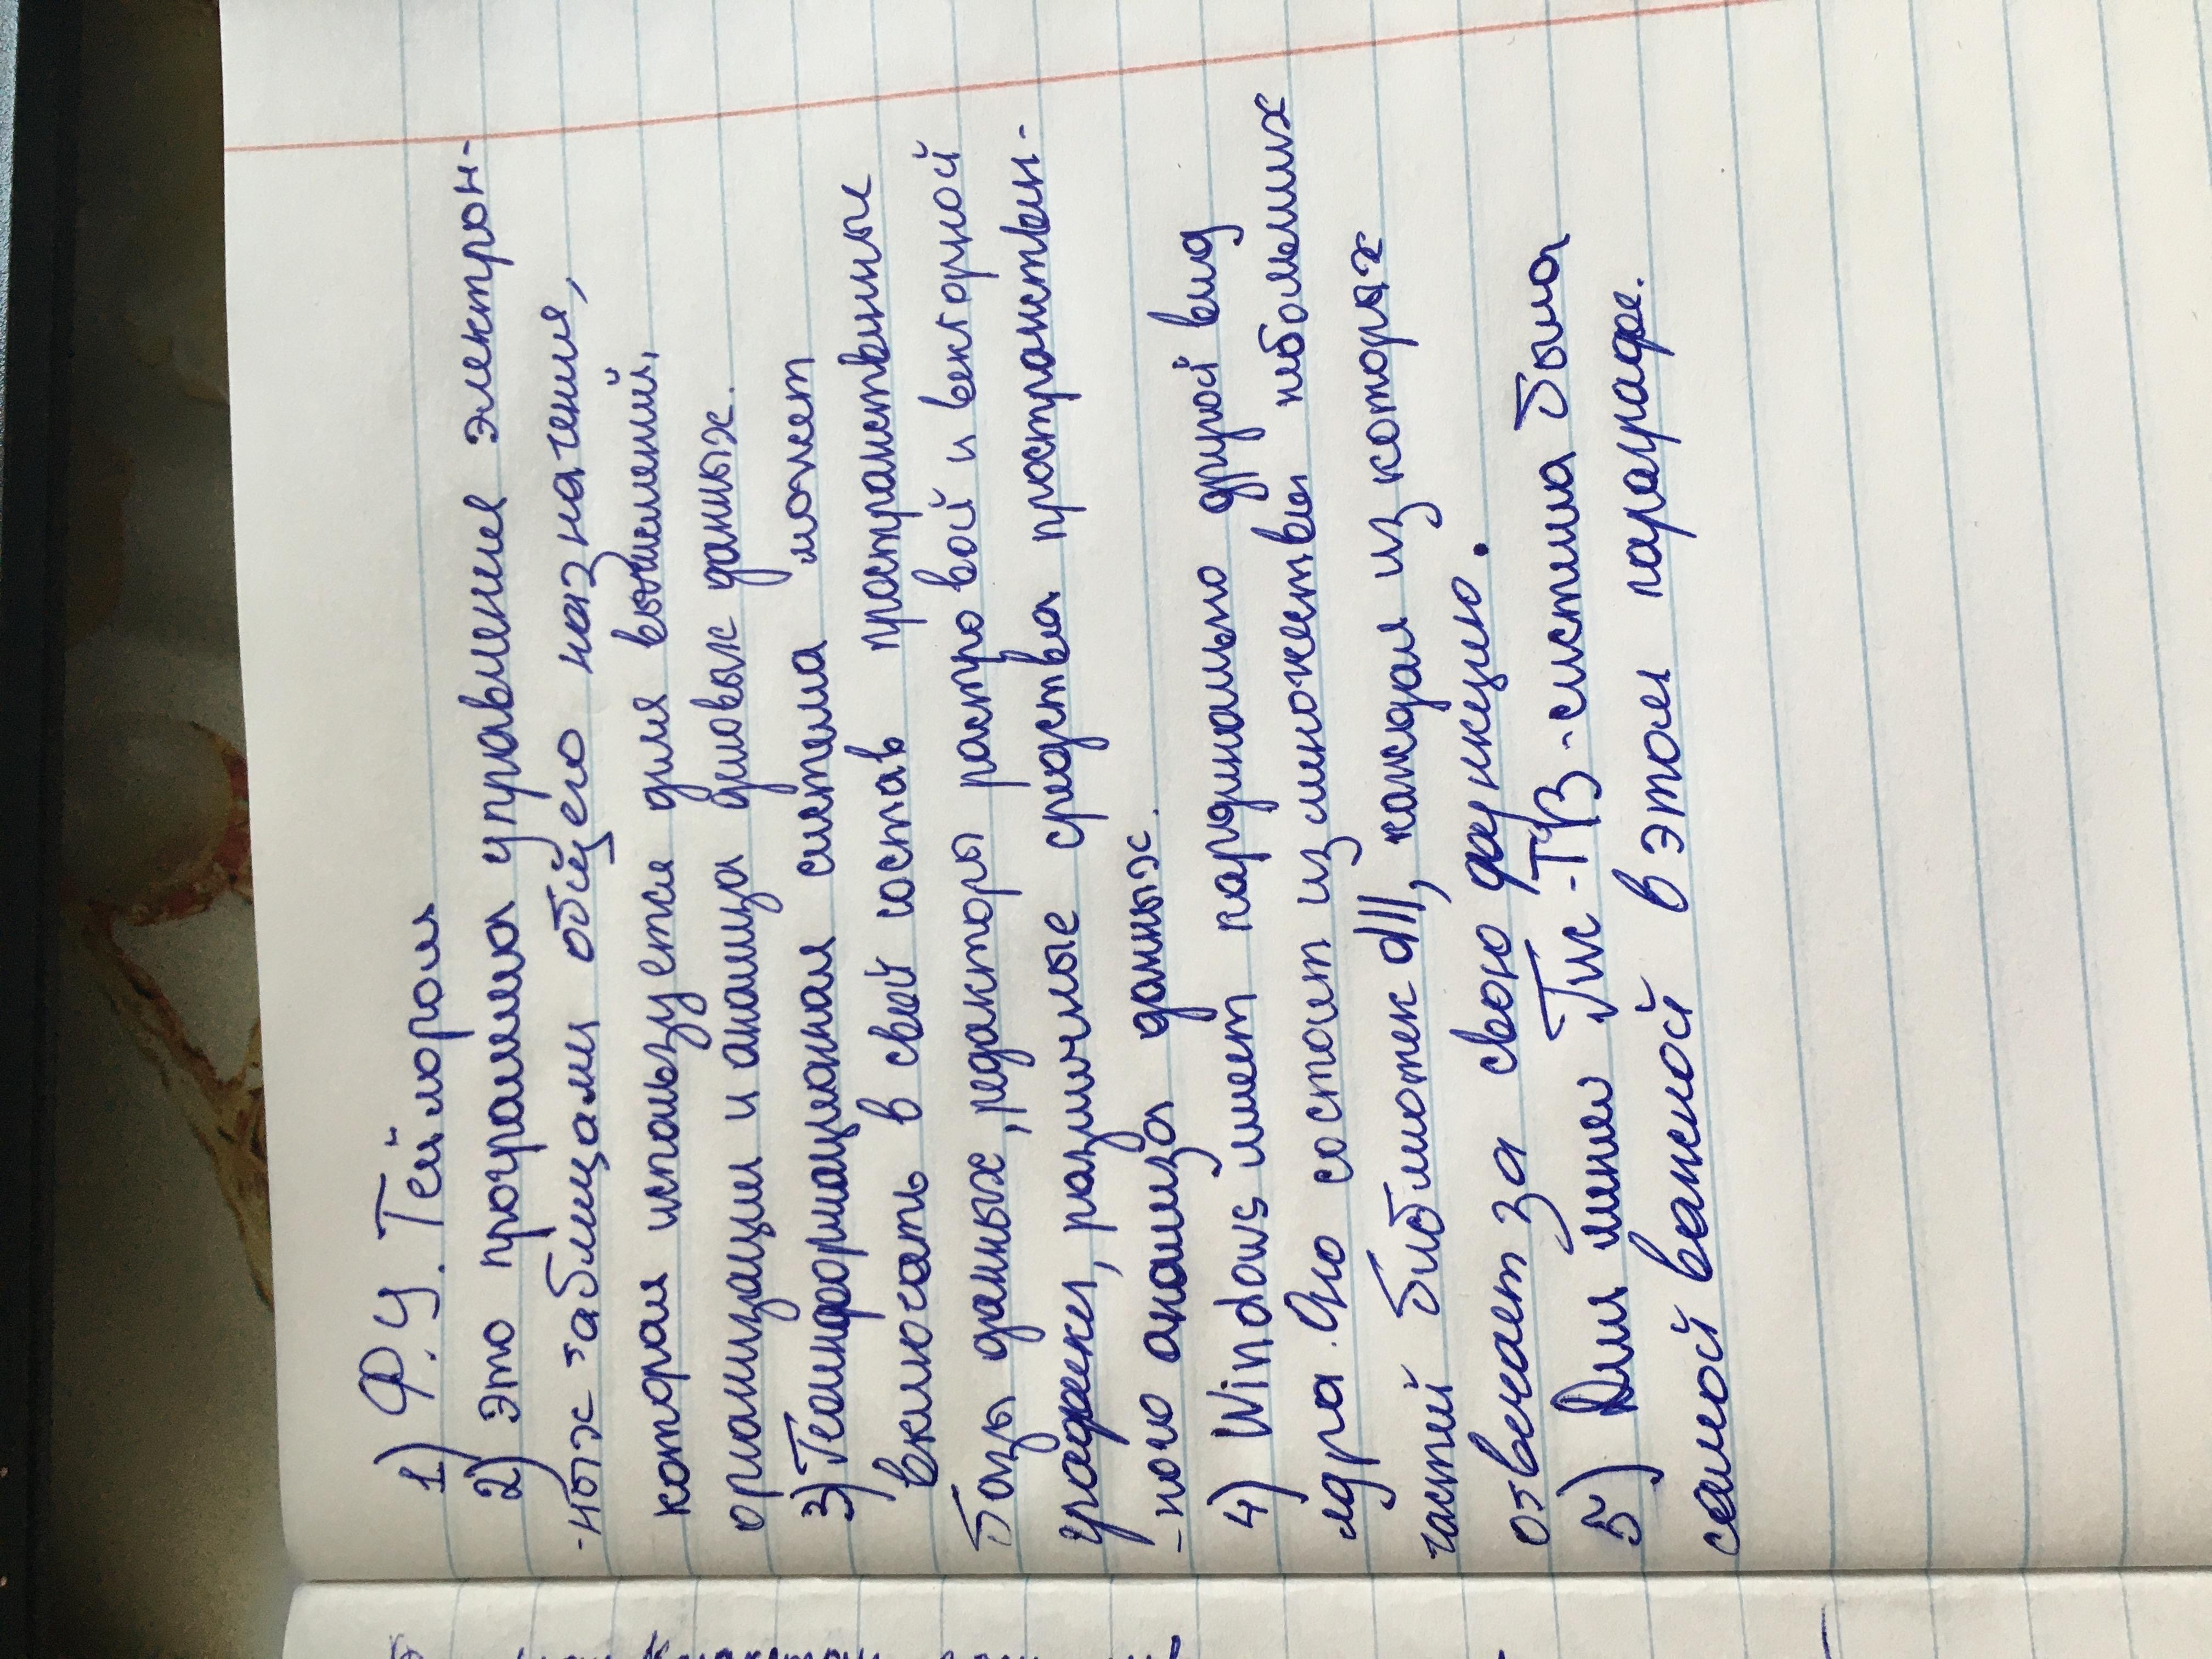 1) Ф.У. Тейлором
2) это программа управление электрон-
-ных таблицами общего назначения,
которая используется для вычислений,
организации и анализа деловых данных.
3) Геоинформационная система может
включать в свой состав пространственных
базы данных, редакторы растровой и векторной
графики, различные средства пространствен-
-ного анализа данных.
4) Windows имеет кардинально другой вид
ядра. Яю состоит из множествы небольших
частей библиотек dll, каждая из которых
отвечает за свою функцию.
5) Для меня Гис-ТВ-система была
самой важной в этом параграфе.